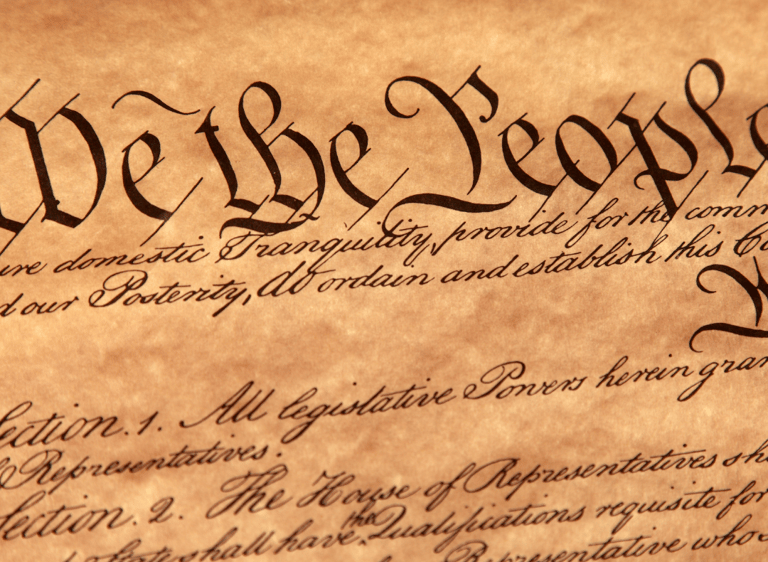 We the People
ure domestic Tranquility, provide for the comm
d our Posterity, do ordain and establish this Co
Section. 1. All legislative Powers herein gran
Representatives.
Section. 2. The House of Representatives sh
the
State shall have Qualifications requisite for
Representative who s